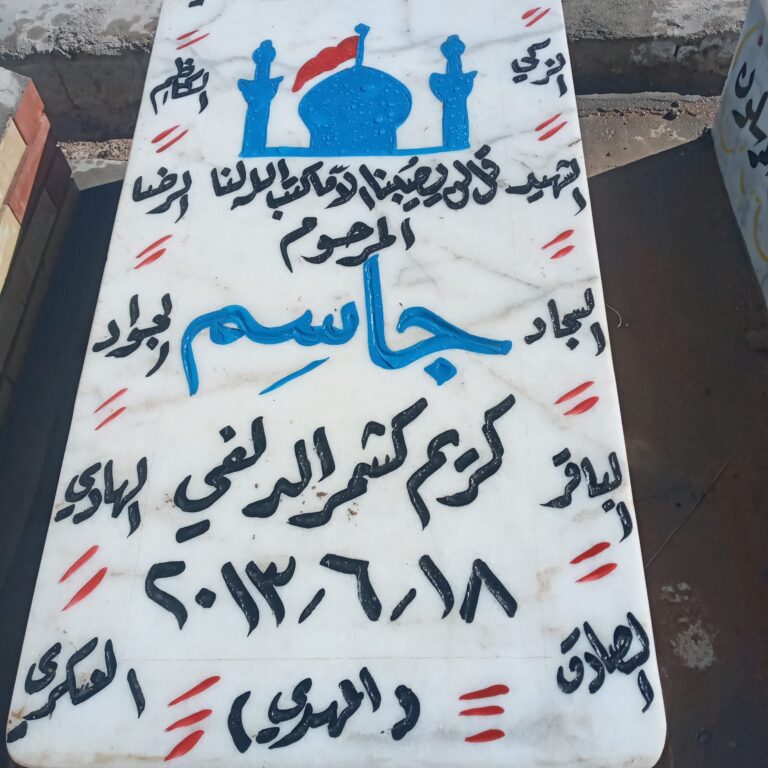 الزكي
الكاظم
الشهيد
قل لن يصيبنا الا ما كتب الله لنا
الرضا
المرحوم
السجاد
جاسم
الجواد
كريم كشمر الدلفي
الباقر
الهادي
١٨-٦-٢٠١٣
الصادق
(المهدي)
العسكري